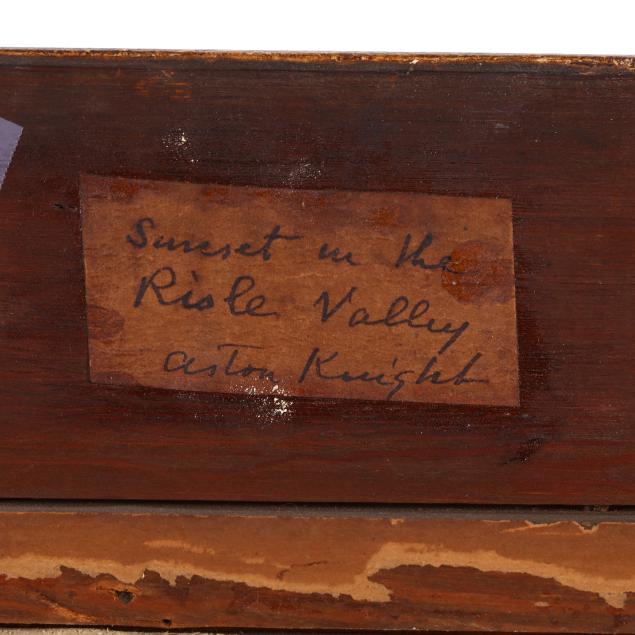 Sunset in the
Risle Valley
Aston Knight